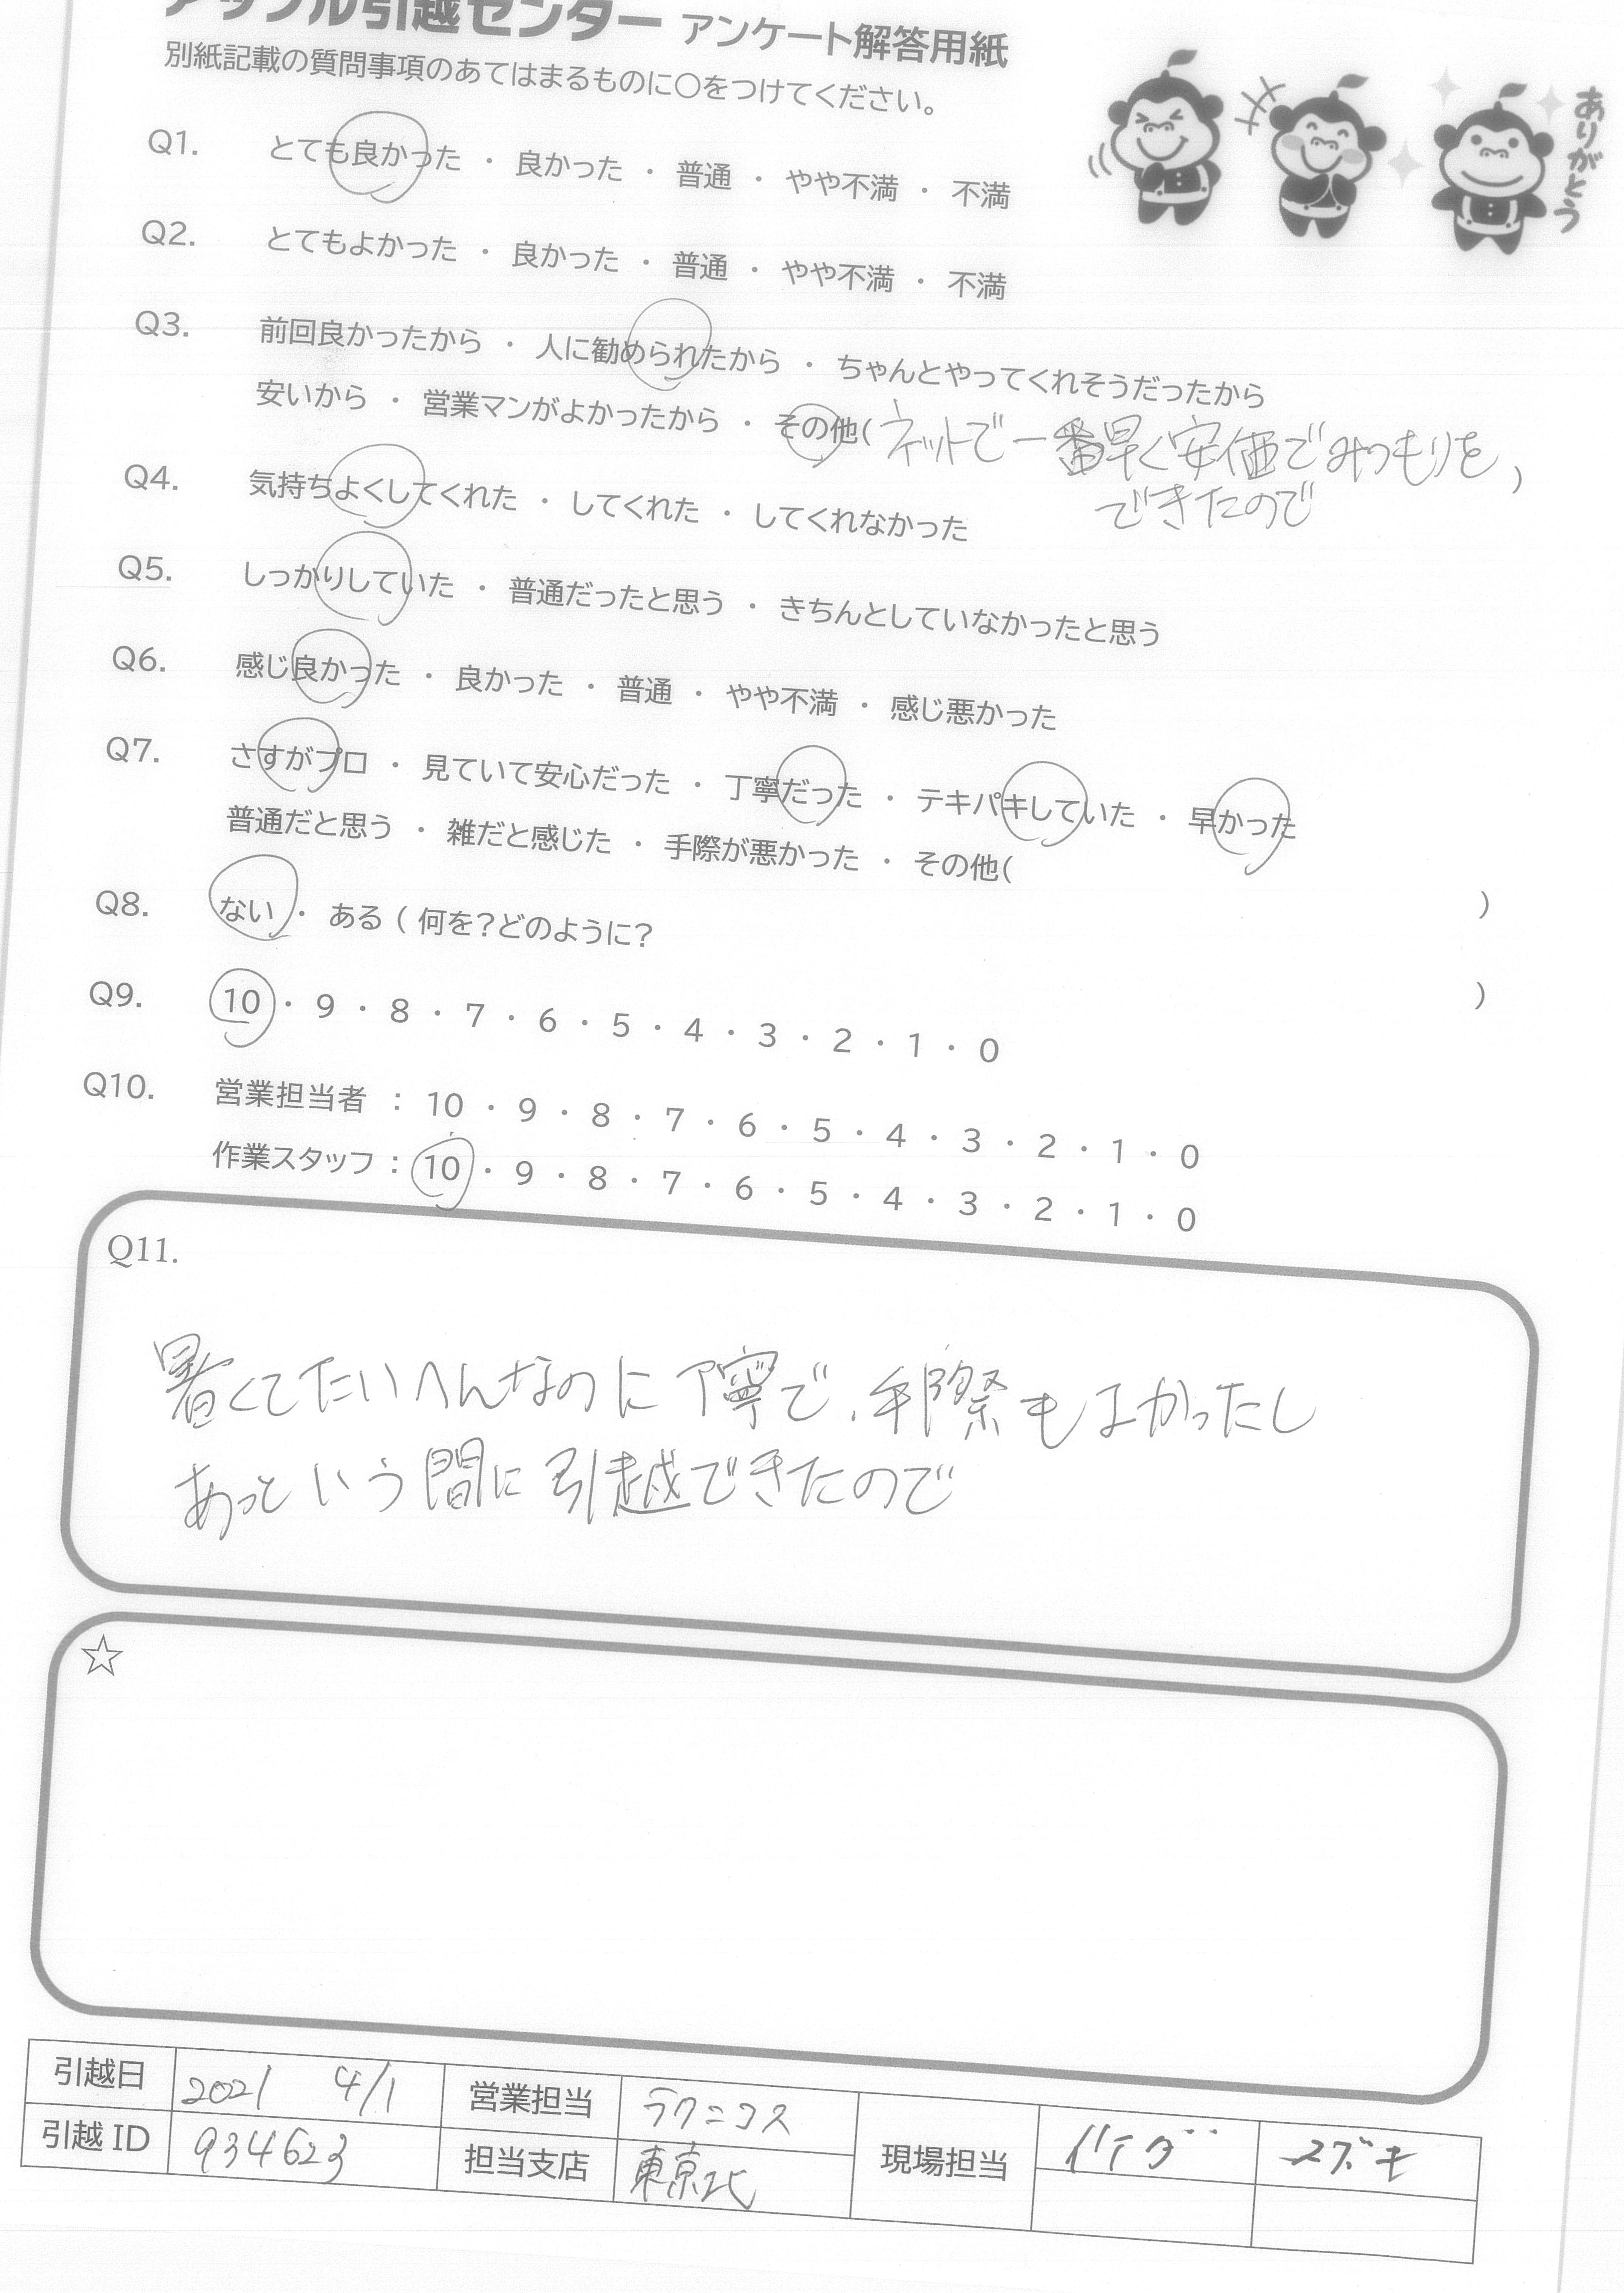 アップル引越センター アンケート解答用紙
別紙記載の質問事項のあてはまるものに○をつけてください。
ありがとう
Q1. とても良かった ・ 良かった ・ 普通 ・ やや不満 ・ 不満
Q2. とてもよかった ・ 良かった ・ 普通 ・ やや不満 ・ 不満
Q3. 前回良かったから ・ 人に勧められたから ・ ちゃんとやってくれそうだったから
安いから ・ 営業マンがよかったから ・ その他( ネットで一番早く安価でみつもりを
できたので )
Q4. 気持ちよくしてくれた ・ してくれた ・ してくれなかった
Q5. しっかりしていた ・ 普通だったと思う ・ きちんとしていなかったと思う
Q6. 感じ良かった ・ 良かった ・ 普通 ・ やや不満 ・ 感じ悪かった
Q7. さすがプロ ・ 見ていて安心だった ・ 丁寧だった ・ テキパキしていた ・ 早かった
普通だと思う ・ 雑だと感じた ・ 手際が悪かった ・ その他( )
Q8. ない ・ ある ( 何を?どのように? )
Q9. 10 ・ 9 ・ 8 ・ 7 ・ 6 ・ 5 ・ 4 ・ 3 ・ 2 ・ 1 ・ 0
Q10. 営業担当者 : 10 ・ 9 ・ 8 ・ 7 ・ 6 ・ 5 ・ 4 ・ 3 ・ 2 ・ 1 ・ 0
作業スタッフ : 10 ・ 9 ・ 8 ・ 7 ・ 6 ・ 5 ・ 4 ・ 3 ・ 2 ・ 1 ・ 0
Q11.
暑くてたいへんなのに丁寧で、手際もよかったし
あっという間に引越できたので
☆
引越日 2021 4/1 営業担当 ラクニコス 現場担当 スズキ
引越ID 934623 担当支店 東京北